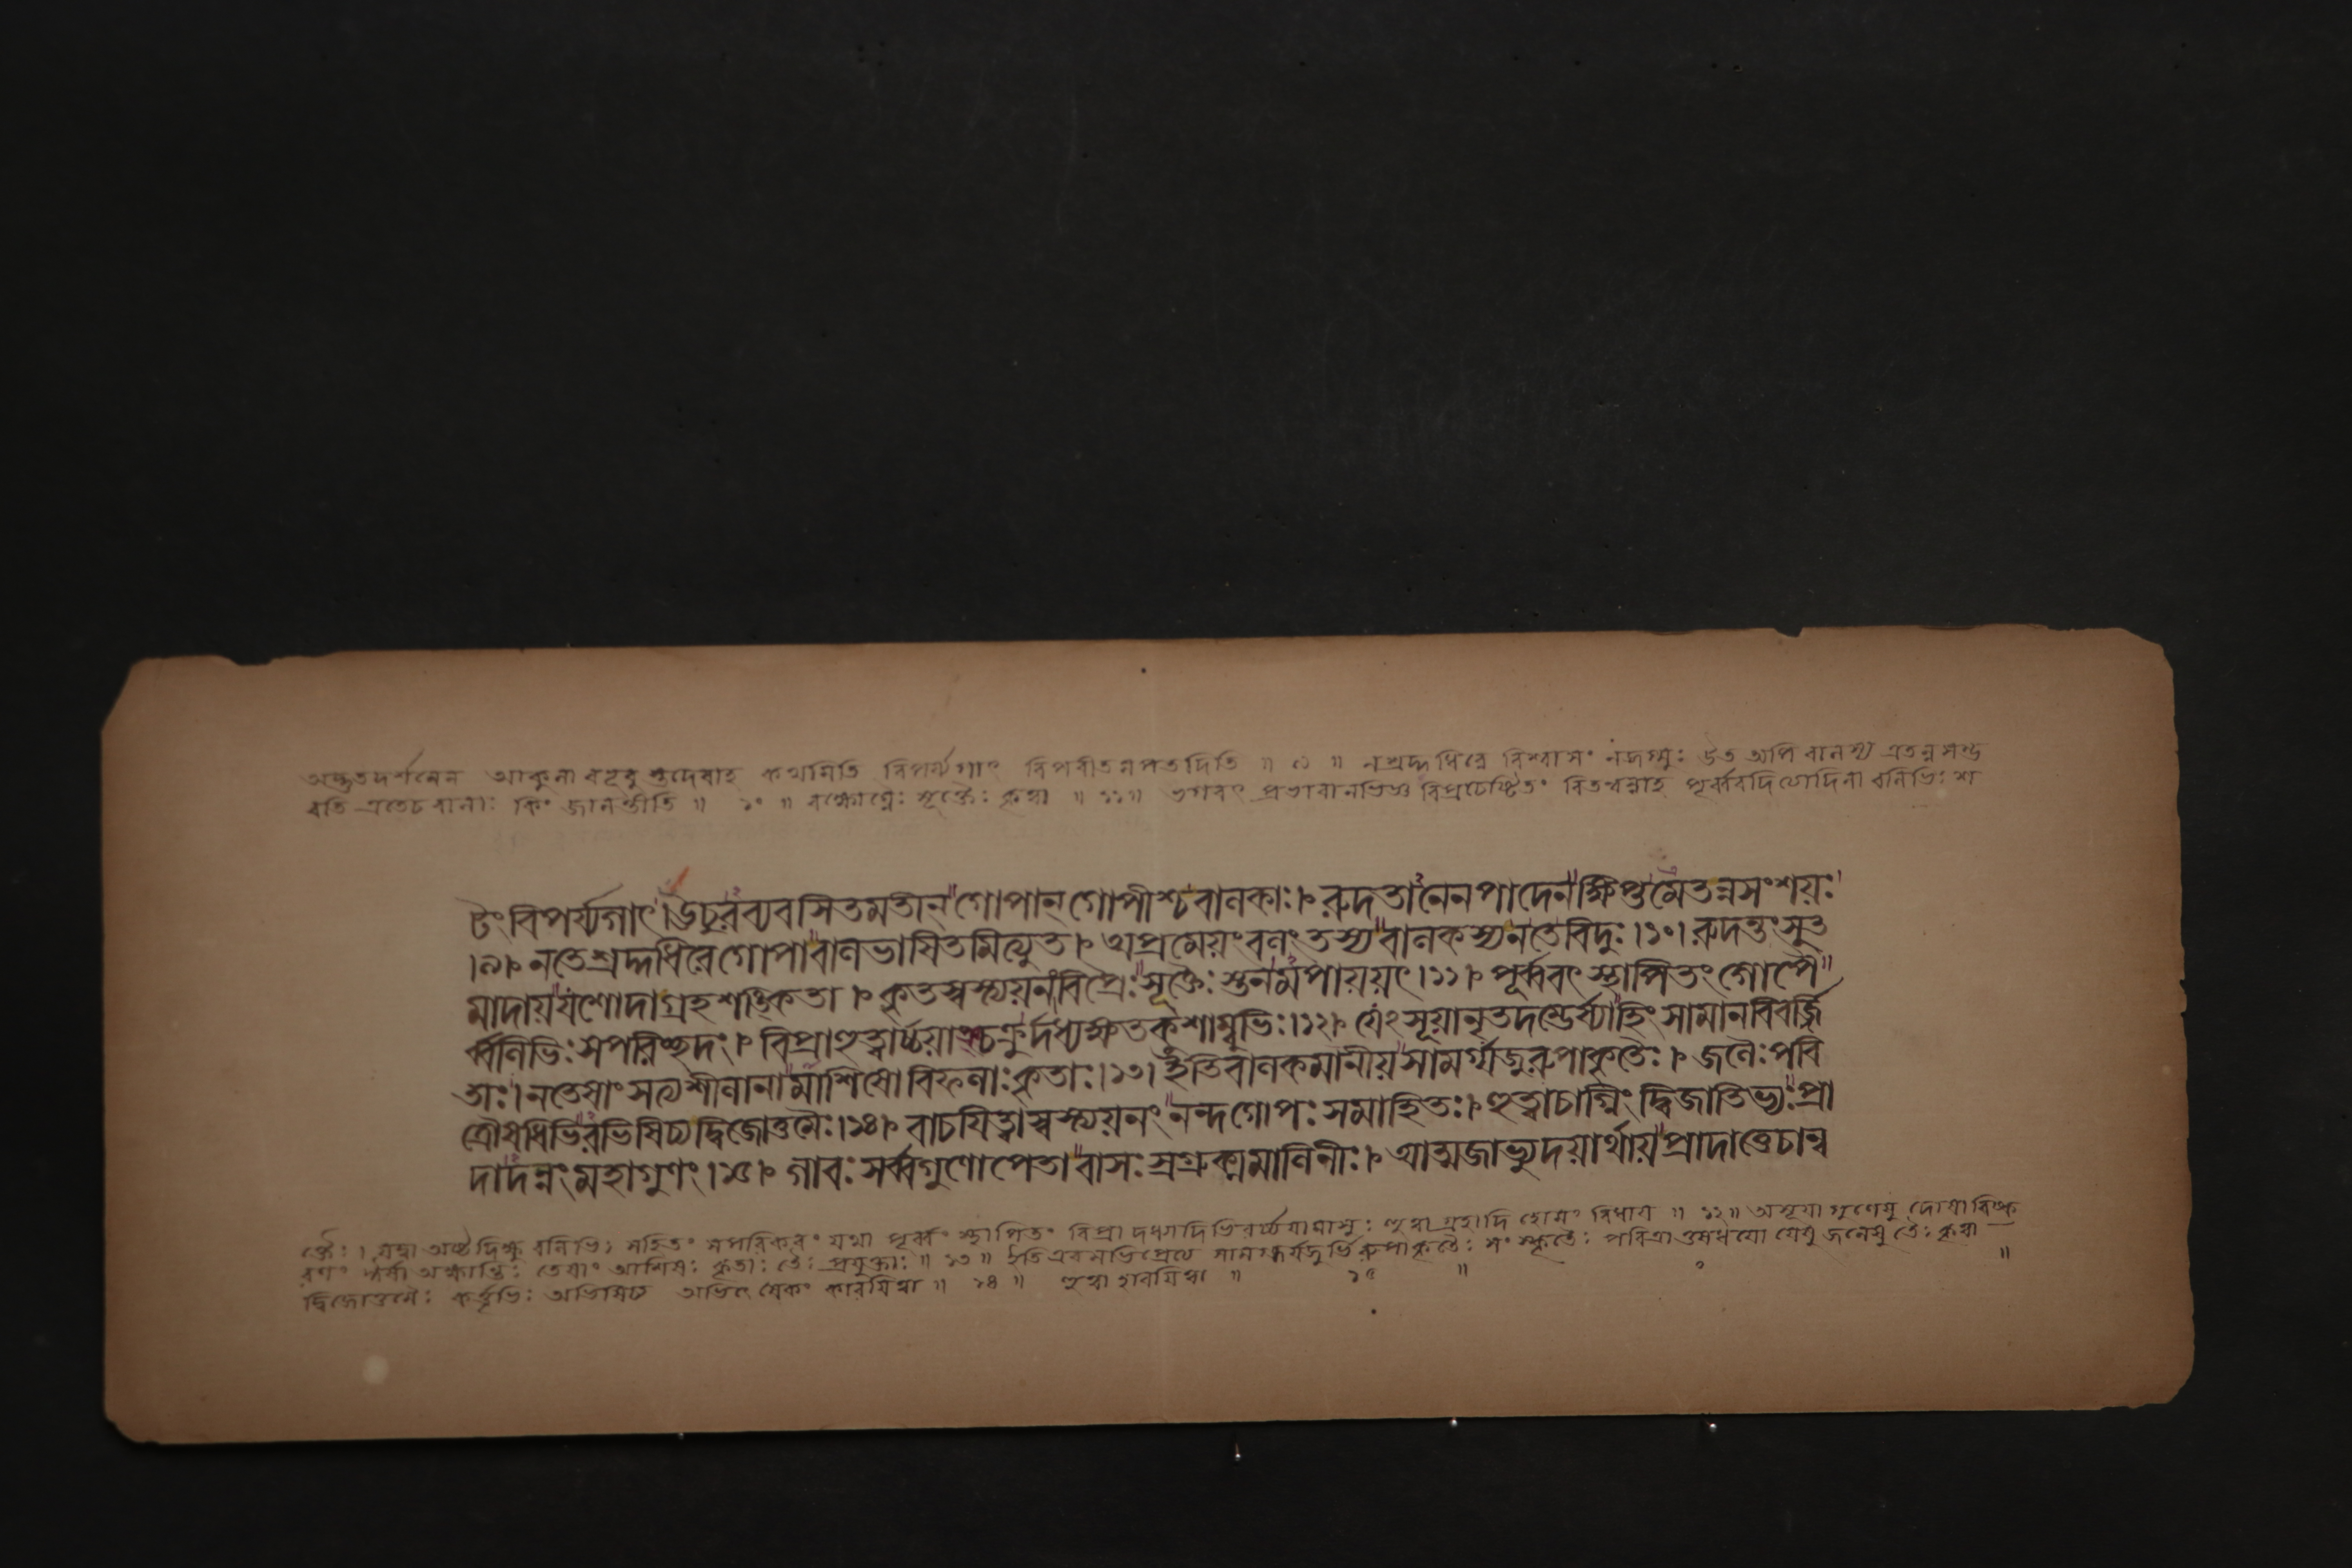 অদ্ভুতদর্শনেন আকুলা বভূবু স্তদেবাহ কথমিতি বিপর্য্যগাৎ বিপরীতমপতদিতি ॥ ৯ ॥ নশ্রদ্দধিরে বিশ্বাসং নজগ্মুঃ উত অপি বালস্য এতন্নসম্ভ
বতি এতেচ বালাঃ কিং জানন্তীতি ॥ ১০ ॥ রক্ষোঘ্নৈঃ সূক্তৈঃ কৃত্বা ॥ ১১ ॥ ভগবৎ প্রভাবানভিজ্ঞ বিপ্রচেষ্টিতং বিতথন্নাহ পূর্ব্ববদিত্যাদিনা বলিভিঃ শ
টং বিপর্য্যগাৎ। ঊচুরব্যবসিতমতীন্ গোপান্ গোপীশ্চবালকাঃ। রুদতানেনপাদেনক্ষিপ্তমেতন্নসংশয়ঃ
।৯। নতেশ্রদ্দধিরেগোপাবালভাষিতমিত্যুত। অপ্রমেয়ংবলং তস্যবালকস্যনতেবিদুঃ।১০। রুদন্তংসুত
মাদায়যশোদাগ্রহশঙ্কিতা। কৃতস্বস্ত্যয়নংবিপ্রৈঃসূক্তৈঃস্তনমপায়য়ৎ।১১। পূর্ব্ববৎ স্থাপিতং গোপৈ
র্ব্বলিভিঃসপরিচ্ছদং। বিপ্রাহুত্বার্চ্চয়াঞ্চক্রুর্দধ্যক্ষতকুশাম্বুভিঃ।১২। যেঽসূয়ানৃতদম্ভের্ষ্যাহিংসামানবিবর্জ্জি
তাঃ। নতেষাং সত্যশীলানামাশিষোবিফলাঃকৃতাঃ।১৩। ইতিবালকমানীয়সামর্গ্যজুরুপাকৃতৈঃ। জলৈঃপবি
ত্রৌষধিভিরভিষিচ্যদ্বিজোত্তমৈঃ।১৪। বাচয়িত্বাস্বস্ত্যয়নং নন্দগোপঃ সমাহিতঃ। হুত্বাচাগ্নিং দ্বিজাতিভ্যঃপ্রা
দাদন্নং মহাগুণং।১৫। গাবঃ সর্ব্বগুণোপেতাবাসঃস্রগ্রুক্মমালিনীঃ। আত্মজাভ্যুদয়ার্থায়প্রাদাত্তেচান্ব
ক্তৈঃ। যদ্বা অষ্টদিক্ষু বলিভিঃ সহিতং সপরিকরং যথা পূর্ব্বং স্থাপিতং বিপ্রা দধ্যাদিভিরর্চ্চয়ামাসুঃ হুত্বা গ্রহাদি হোমং বিধায় ॥ ১২ ॥ অসূয়া গুণেষু দোষাবিষ্ক
রণং ঈর্ষা অক্ষান্তিঃ তেষাং আশিষঃ কৃতাঃ তৈঃ প্রযুক্তাঃ ॥ ১৩ ॥ ইতি এবমভিপ্রেত্য সামর্গ্যজুর্ভিরুপাকৃতৈঃ সংস্কৃতৈঃ পবিত্রা ওষধয়ো যেষু জলেষু তৈঃ কৃত্বা
দ্বিজোত্তমৈঃ কর্ত্তৃভিঃ অভিষিচ্য অভিষেকং কারয়িত্বা ॥ ১৪ ॥ হুত্বা হাবয়িত্বা ॥ ১৫ ॥